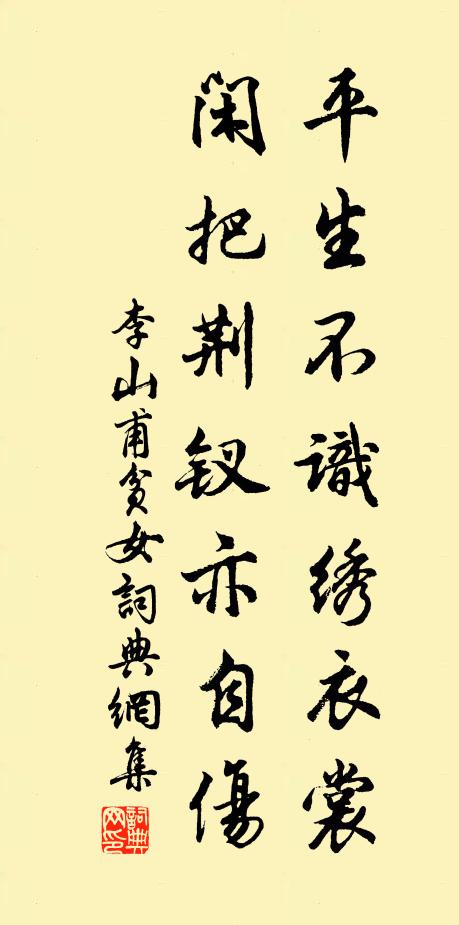 平生不識绣衣裳
閑把荆钗亦自傷
李山甫貧女詞典網集
詞典网印